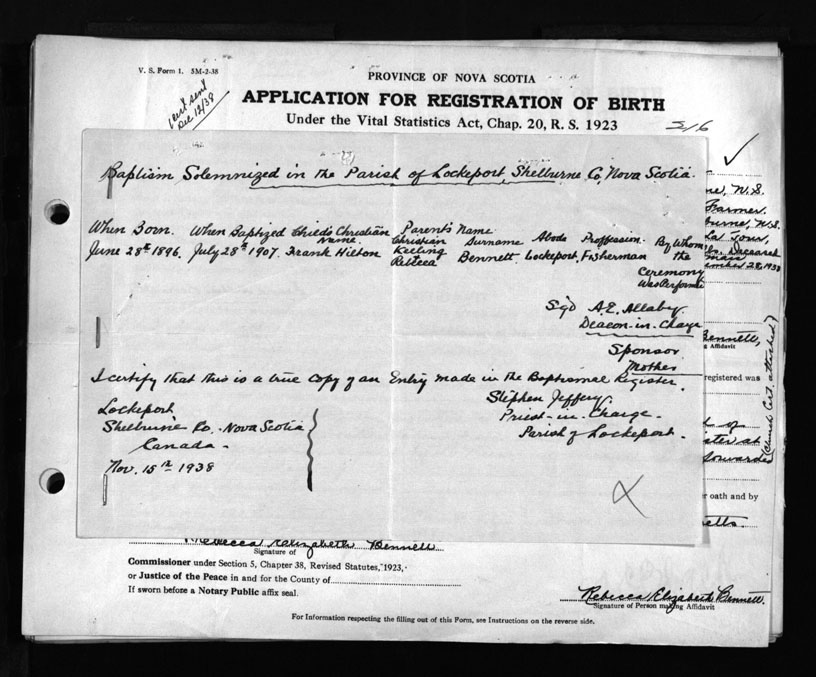 V. S. Form 1. 5M-2-38
PROVINCE OF NOVA SCOTIA
APPLICATION FOR REGISTRATION OF BIRTH
Under the Vital Statistics Act, Chap. 20, R. S. 1923
cert sent
Dec 12/38
Baptism Solemnized in the Parish of Lockeport, Shelburne Co, Nova Scotia.
When Born. When Baptized Child's Christian Name. Parent's Name
Christian Surname Abode Proffession. By Whom the Ceremony Was Performed
June 28th 1896. July 28th 1907. Frank Hilton Keeling Rebecca Bennett. Lockeport, Fisherman
Sgd A.E. Allaby.
Deacon-in-Charge
Sponsor
Mother
I certify that this is a true copy of an Entry made in the Baptismal Register.
Stephen Jeffery.
Priest-in-Charge-
Parish of Lockeport.
Lockeport,
Shelburne Co. Nova Scotia
Canada-
Nov. 15th 1938
N.S.
Farmer.
La Tour,
Deceased
28, 1938
Bennett,
Affidavit
registered was
(Church Cert attached)
or oath and by
Rebecca Elizabeth Bennett
Signature of
Commissioner under Section 5, Chapter 38, Revised Statutes, 1923,
or Justice of the Peace in and for the County of
If sworn before a Notary Public affix seal.
Rebecca Elizabeth Bennett.
Signature of Person making Affidavit
For Information respecting the filling out of this Form, see Instructions on the reverse side.